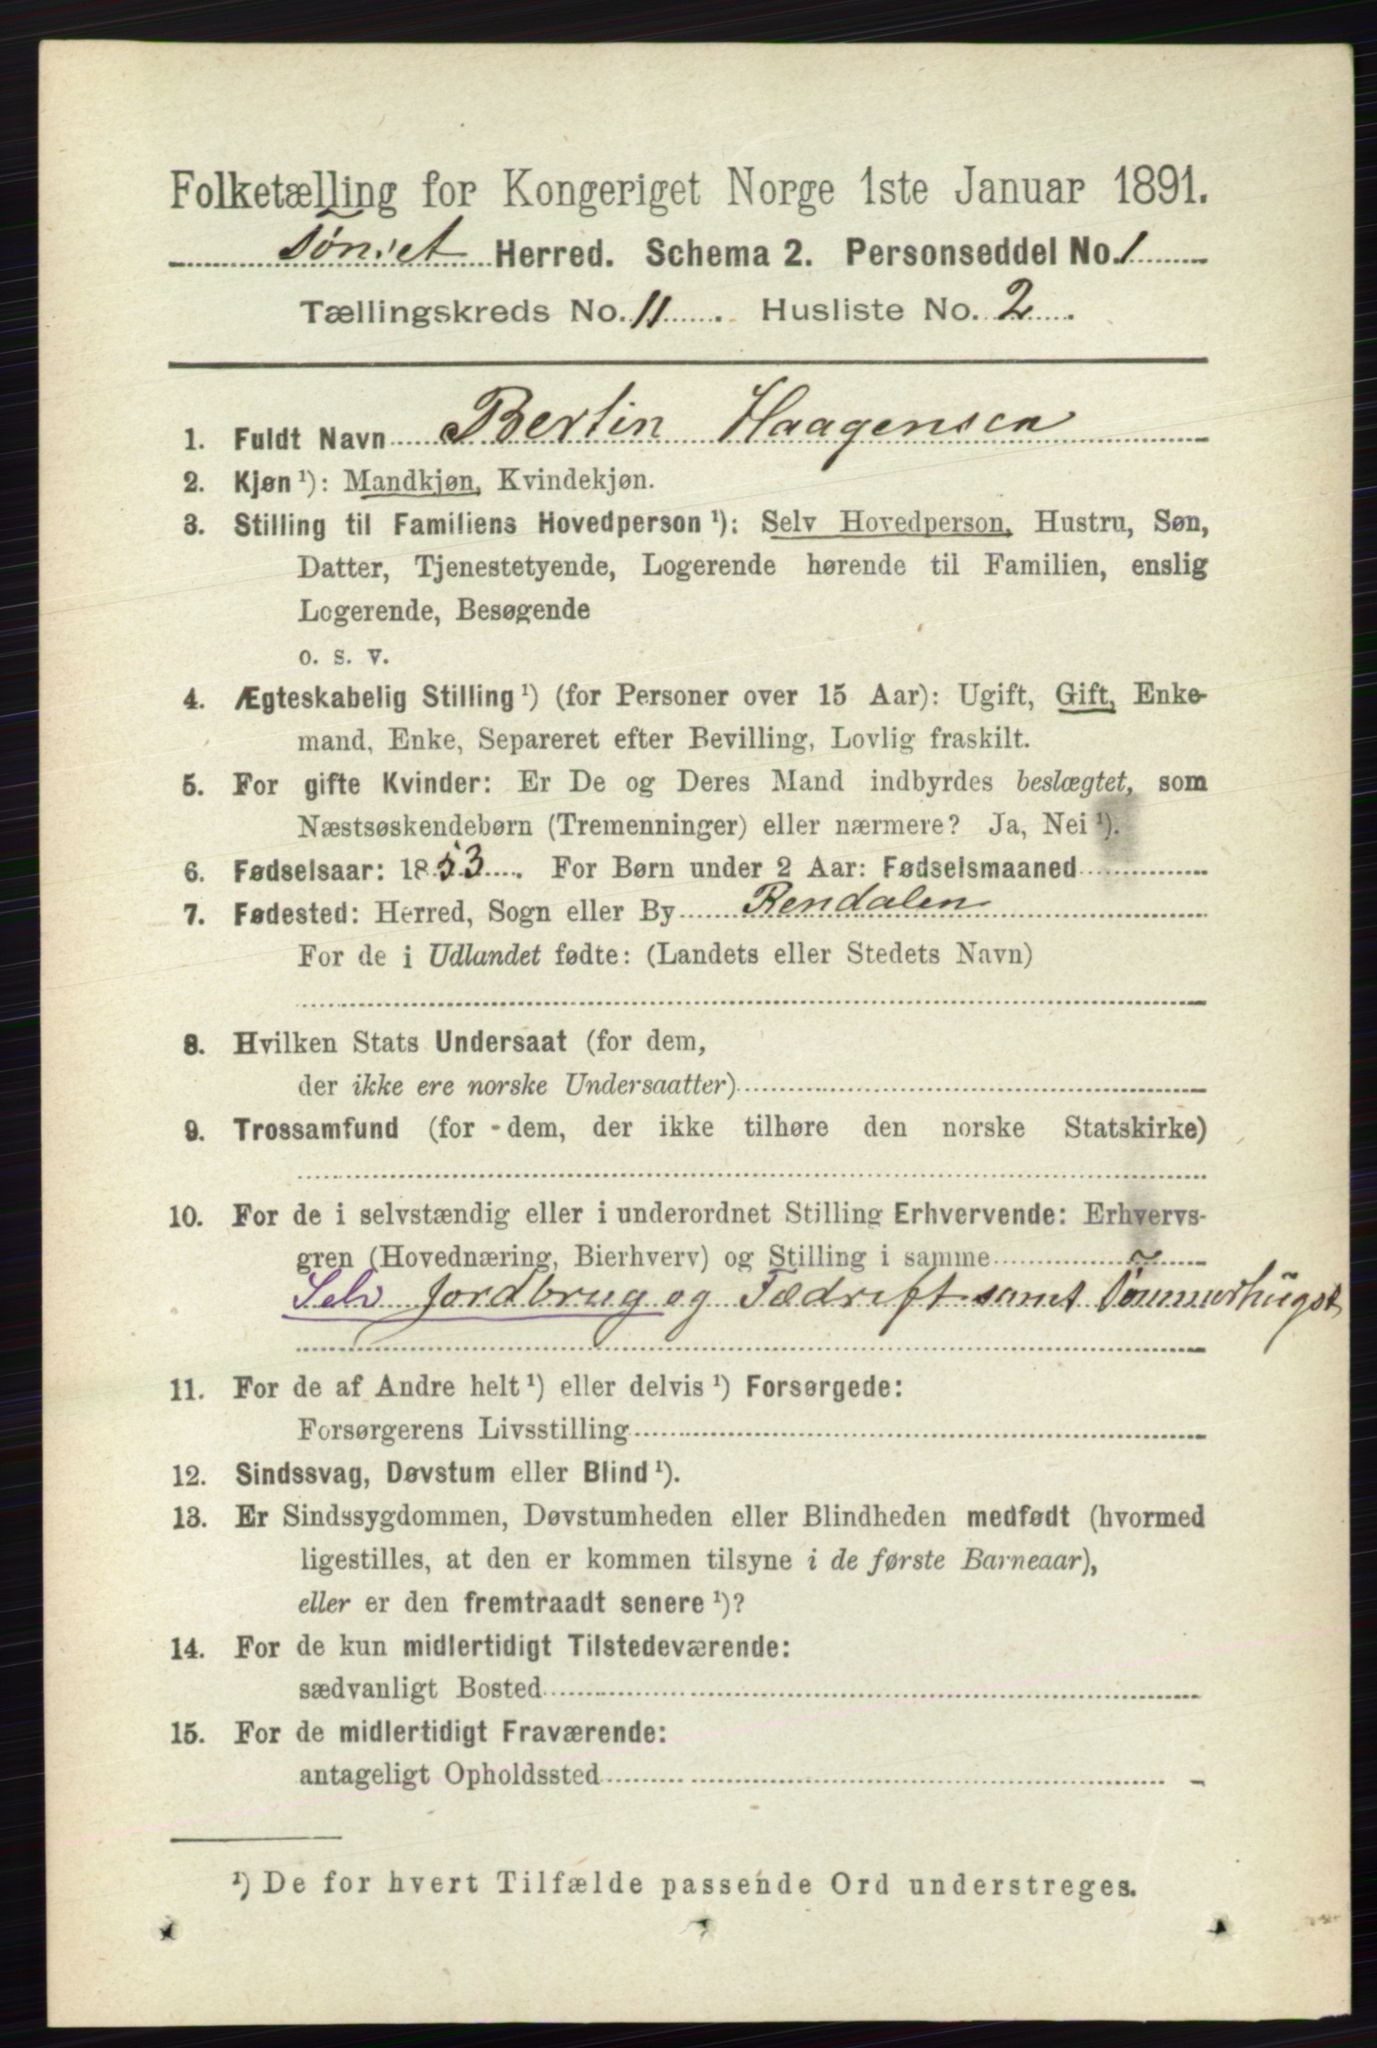 Folketælling for Kongeriget Norge 1ste Januar 1891.
Tønset Herred. Schema 2. Personseddel No. 1
Tællingskreds No. 11. Husliste No. 2.
1. Fuldt Navn Bertin Haagensen
2. Kjøn ¹): Mandkjøn, Kvindekjøn.
3. Stilling til Familiens Hovedperson ¹): Selv Hovedperson, Hustru, Søn,
Datter, Tjenestetyende, Logerende hørende til Familien, enslig
Logerende, Besøgende
o. s. v.
4. Ægteskabelig Stilling ¹) (for Personer over 15 Aar): Ugift, Gift, Enke-
mand, Enke, Separeret efter Bevilling, Lovlig fraskilt.
5. For gifte Kvinder: Er De og Deres Mand indbyrdes beslægtet, som
Næstsøskendebørn (Tremenninger) eller nærmere? Ja, Nei ¹).
6. Fødselsaar: 1853. For Børn under 2 Aar: Fødselsmaaned
7. Fødested: Herred, Sogn eller By Rendalen
For de i Udlandet fødte: (Landets eller Stedets Navn)
8. Hvilken Stats Undersaat (for dem,
der ikke ere norske Undersaatter)
9. Trossamfund (for dem, der ikke tilhøre den norske Statskirke)
10. For de i selvstændig eller i underordnet Stilling Erhvervende: Erhvervs-
gren (Hovednæring, Bierhverv) og Stilling i samme
Selv Jordbrug og Fædrift samt Tømmerhugst
11. For de af Andre helt ¹) eller delvis ¹) Forsørgede:
Forsørgerens Livsstilling
12. Sindssvag, Døvstum eller Blind ¹).
13. Er Sindssygdommen, Døvstumheden eller Blindheden medfødt (hvormed
ligestilles, at den er kommen tilsyne i de første Barneaar),
eller er den fremtraadt senere ¹)?
14. For de kun midlertidigt Tilstedeværende:
sædvanligt Bosted
15. For de midlertidigt Fraværende:
antageligt Opholdssted
¹) De for hvert Tilfælde passende Ord understreges.